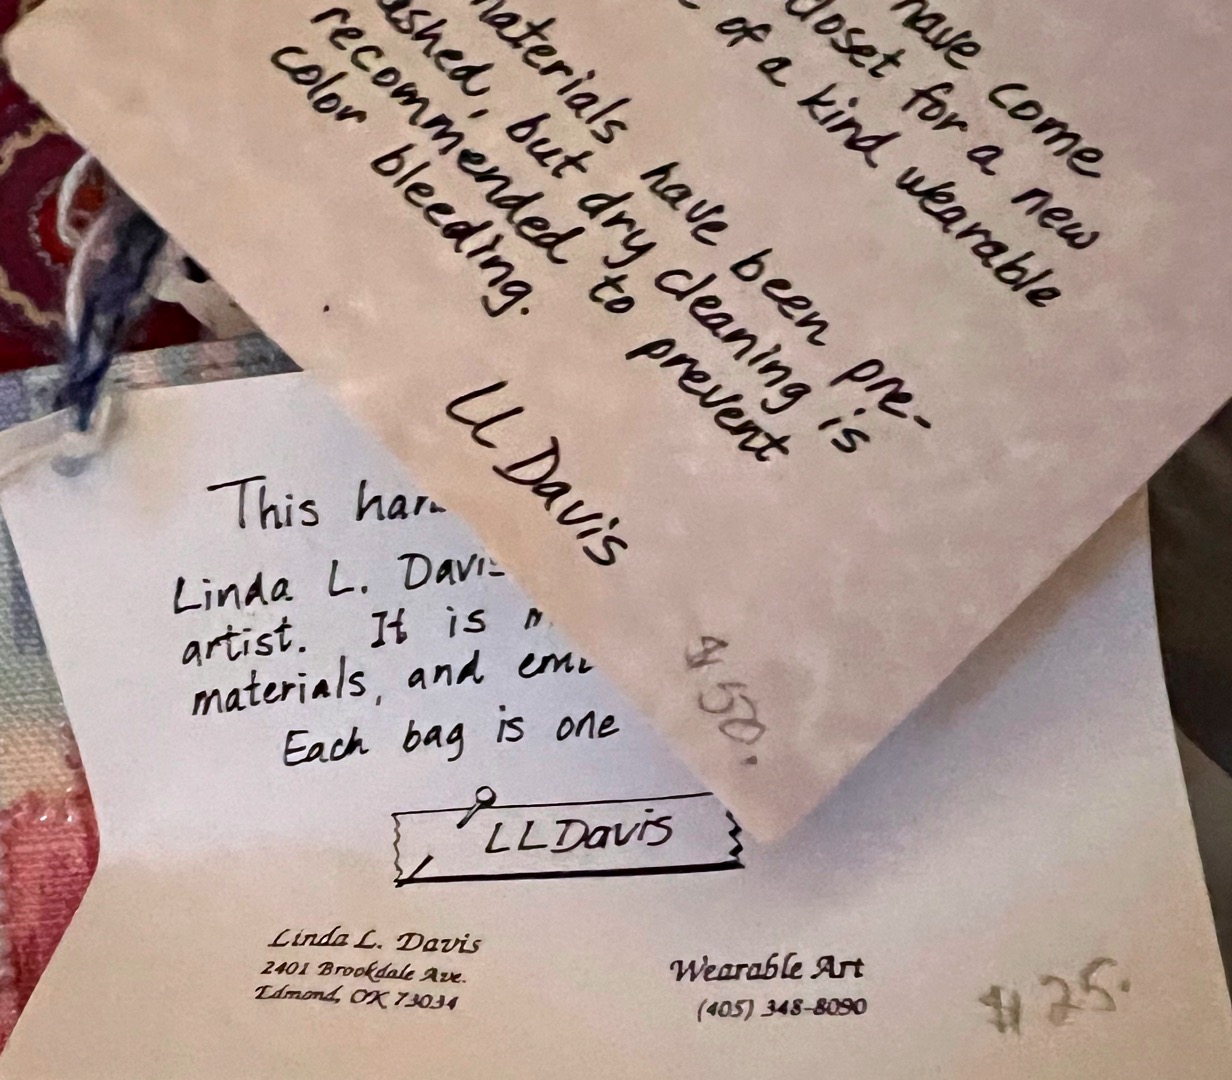 have come
closet for a new
of a kind wearable
materials have been pre-
shed, but dry cleaning is
recommended to prevent
color bleeding.
LL Davis
$50.
This han
Linda L. Davis
artist. It is m
materials, and em
Each bag is one
LL Davis
Linda L. Davis
2401 Brookdale Ave.
Edmond, OK 73034
Wearable Art
(405) 348-8090
$25.